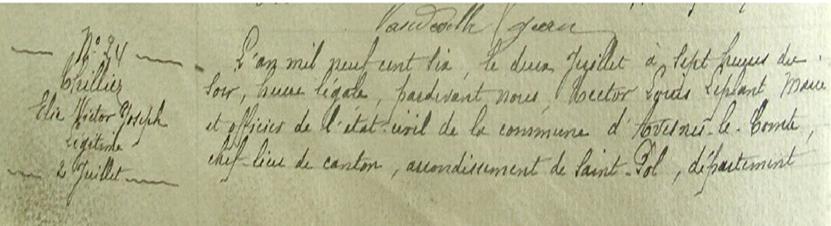 Nº 24
Thilliez
Elie Victor Joseph
Légitime
2 Juillet
L'an mil neuf cent six, le deux Juillet à Sept heures du
Soir, heure légale, pardevant nous, Hector Louis Leplant Maire
et officier de l'état-civil de la commune d'Avesnes-le-Comte,
chef-lieu de canton, arrondissement de Saint-Pol, département